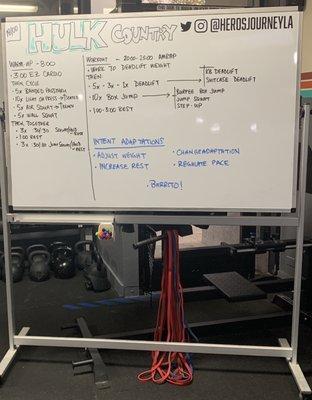 HULK COUNTRY @HEROSJOURNEYLA
WARM UP - 8:00
• 3:00 E.Z. CARDIO
THEN CYCLE
• 5x BANDED
• 5x AIR SQUAT
• 5x WALL SQUAT
THEN TOGETHER
• 3x 30/30
• 1:00 REST
• 3x 30/30 JUMP SQUAT
WORKOUT - 20:00-25:00 AMRAP
- WORK TO DEADLIFT WEIGHT
THEN
• 5x - 3x - 1x DEADLIFT
• 10x BOX JUMP
• 1:00 - 3:00 REST
KB DEADLIFT
SUITCASE DEADLIFT
BURPEE BOX JUMP
JUMP SQUAT
STEP UP
INTENT ADAPTATIONS
• ADJUST WEIGHT
• INCREASE REST
• CHANGE ADAPTATION
• REGULATE PACE
• BURRITO!